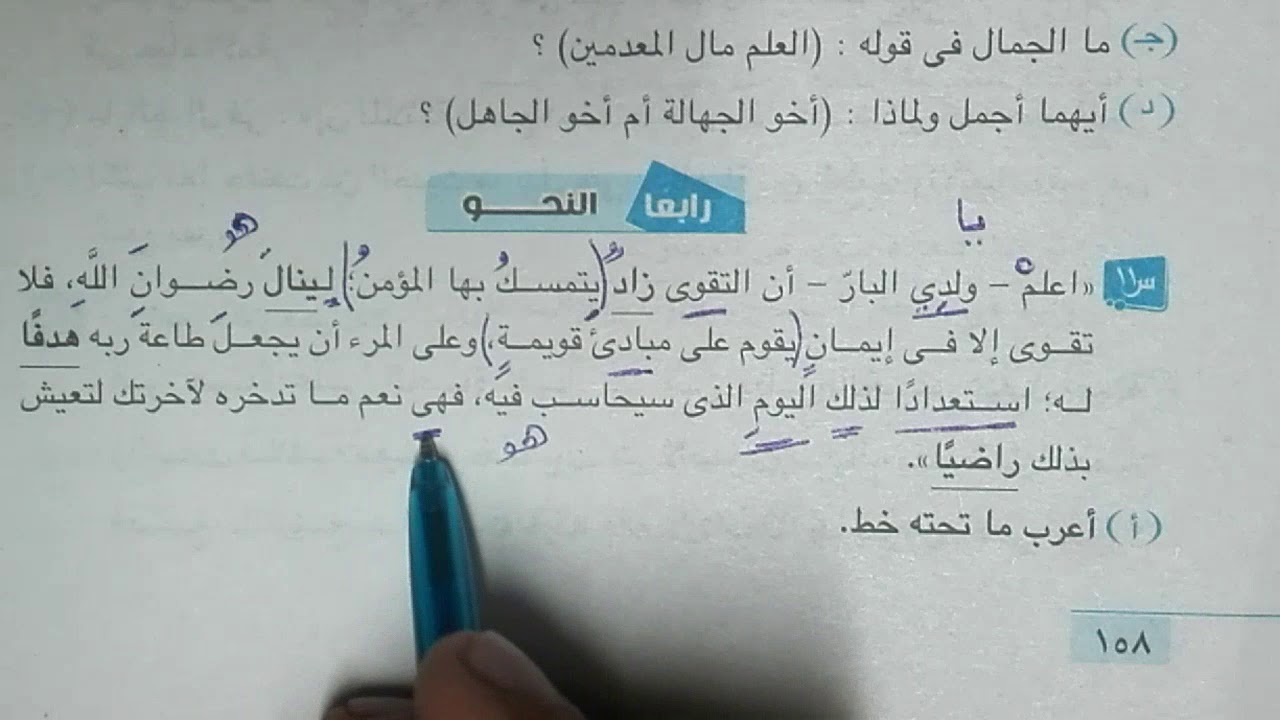 (جـ) ما الجمال فى قوله : (العلم مال المعدمين) ؟
(د) أيهما أجمل ولماذا : (أخو الجهالة أم أخو الجاهل) ؟
رابعا النحـــو
يا
هو
س١١ «اعلمْ – ولدي البارّ – أن التقوى زادٌ (يتمسكُ بها المؤمنُ)؛ لِينالَ رضوانَ اللَّهِ، فلا
تقوى إلا فى إيمانٍ (يقوم على مبادئَ قويمةٍ)، وعلى المرء أن يجعلَ طاعةَ ربه هدفًا
له؛ استعدادًا لذلك اليومِ الذى سيحاسب فيه، فهى نعم ما تدخره لآخرتك لتعيش
هو
بذلك راضيًا».
(أ) أعرب ما تحته خط.
١٥٨